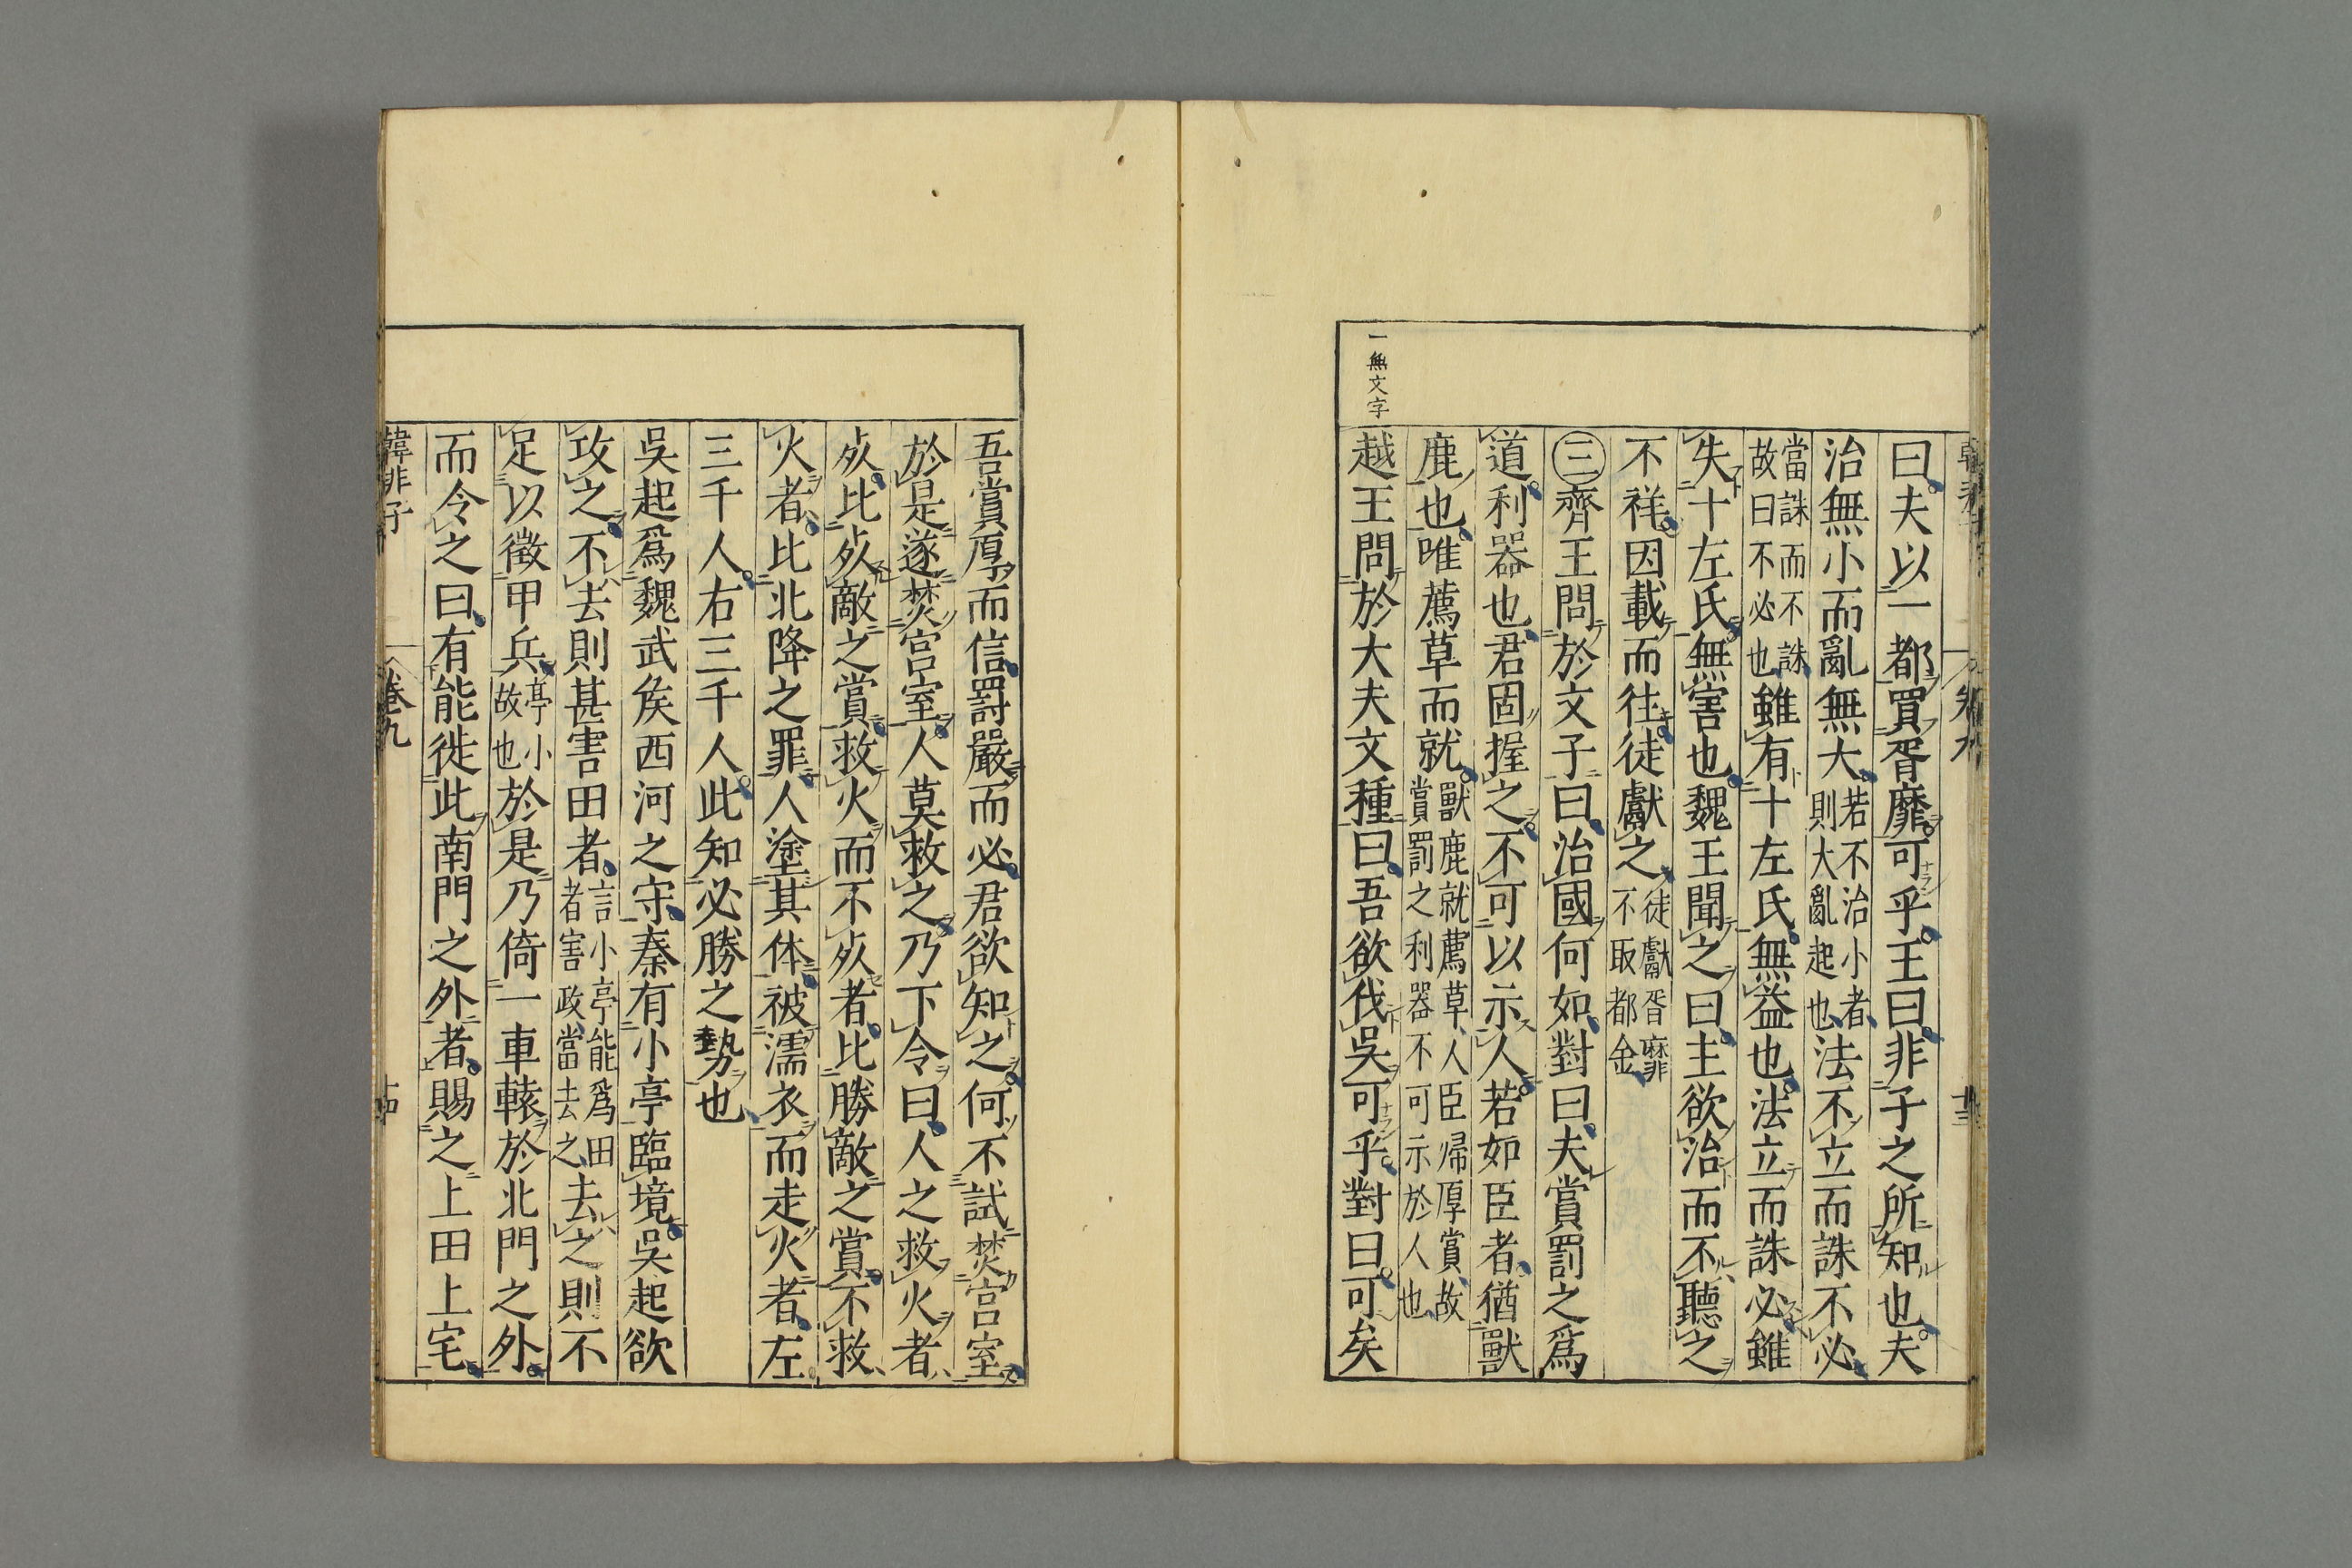 曰夫以一都買胥靡可乎王曰非子之所知也夫
治無小而亂無大若不治小者則大亂起也法不立而誅不必
當誅而不誅故曰不必也雖有十左氏無益也法立而誅必雖
失十左氏無害也魏王聞之曰主欲治而不聽之
不祥因載而往徒獻之徒獻胥靡不取都金
㊂齊王問於文子曰治國何如對曰夫賞罰之爲
道利器也君固握之不可以示人若如臣者猶獸
鹿也唯薦草而就獸鹿就薦草人臣歸厚賞故賞罰之利器不可示於人也
一無文字
越王問於大夫文種曰吾欲伐吳可乎對曰可矣
吾賞厚而信罰嚴而必君欲知之何不試焚宮室
於是遂焚宮室人莫救之乃下令曰人之救火者
死比死敵之賞救火而不死者比勝敵之賞不救
火者比北降之罪人塗其体被濡衣而走火者左
三千人右三千人此知必勝之勢也
吳起爲魏武矦西河之守秦有小亭臨境吳起欲
攻之不去則甚害田者言小亭能爲田者害政當去之去之則不
足以徵甲兵亭小故也於是乃倚一車轅於北門之外
而令之曰有能徙此南門之外者賜之上田上宅
韓非子 卷九 十四